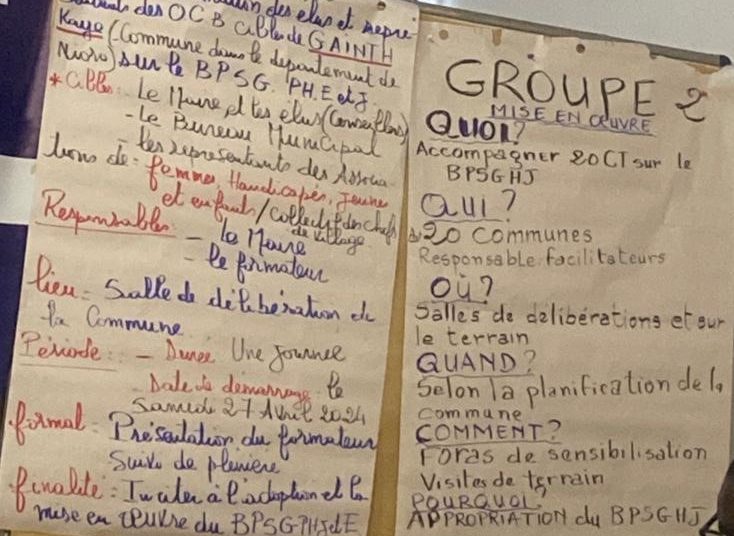 des OCB cible de GAINTH
Kaye (Commune dans le département de
Nioro) sur le BPSG. PH.E et J
* Cibles: Le Maire et les élus (Conseillers)
- Le Bureau Municipal
- les représentants des Associa
tions de: femmes, Handicapés, Jeunes
et enfants / collectif des chefs
de village
Responsables - le Maire
- le formateur
lieu = Salle de délibération de
la Commune
Période: - Duree Une Journée
Date de démarrage le
Samedi 27 Avril 2024
format - Présentation du formateur
Suivi de plénière
finalité: Inciter à l'adoption et la
mise en œuvre du BPSGPHJetE
GROUPE 2
MISE EN ŒUVRE
QUOI?
Accompagner 20 CT sur le
BPSGHJ
QUI?
20 Communes
Responsable facilitateurs
OÙ?
Salles de délibérations et sur
le terrain
QUAND?
Selon la planification de la
commune
COMMENT?
Foras de sensibilisation
Visites de terrain
POURQUOI?
APPROPRIATION du BPSGHJ